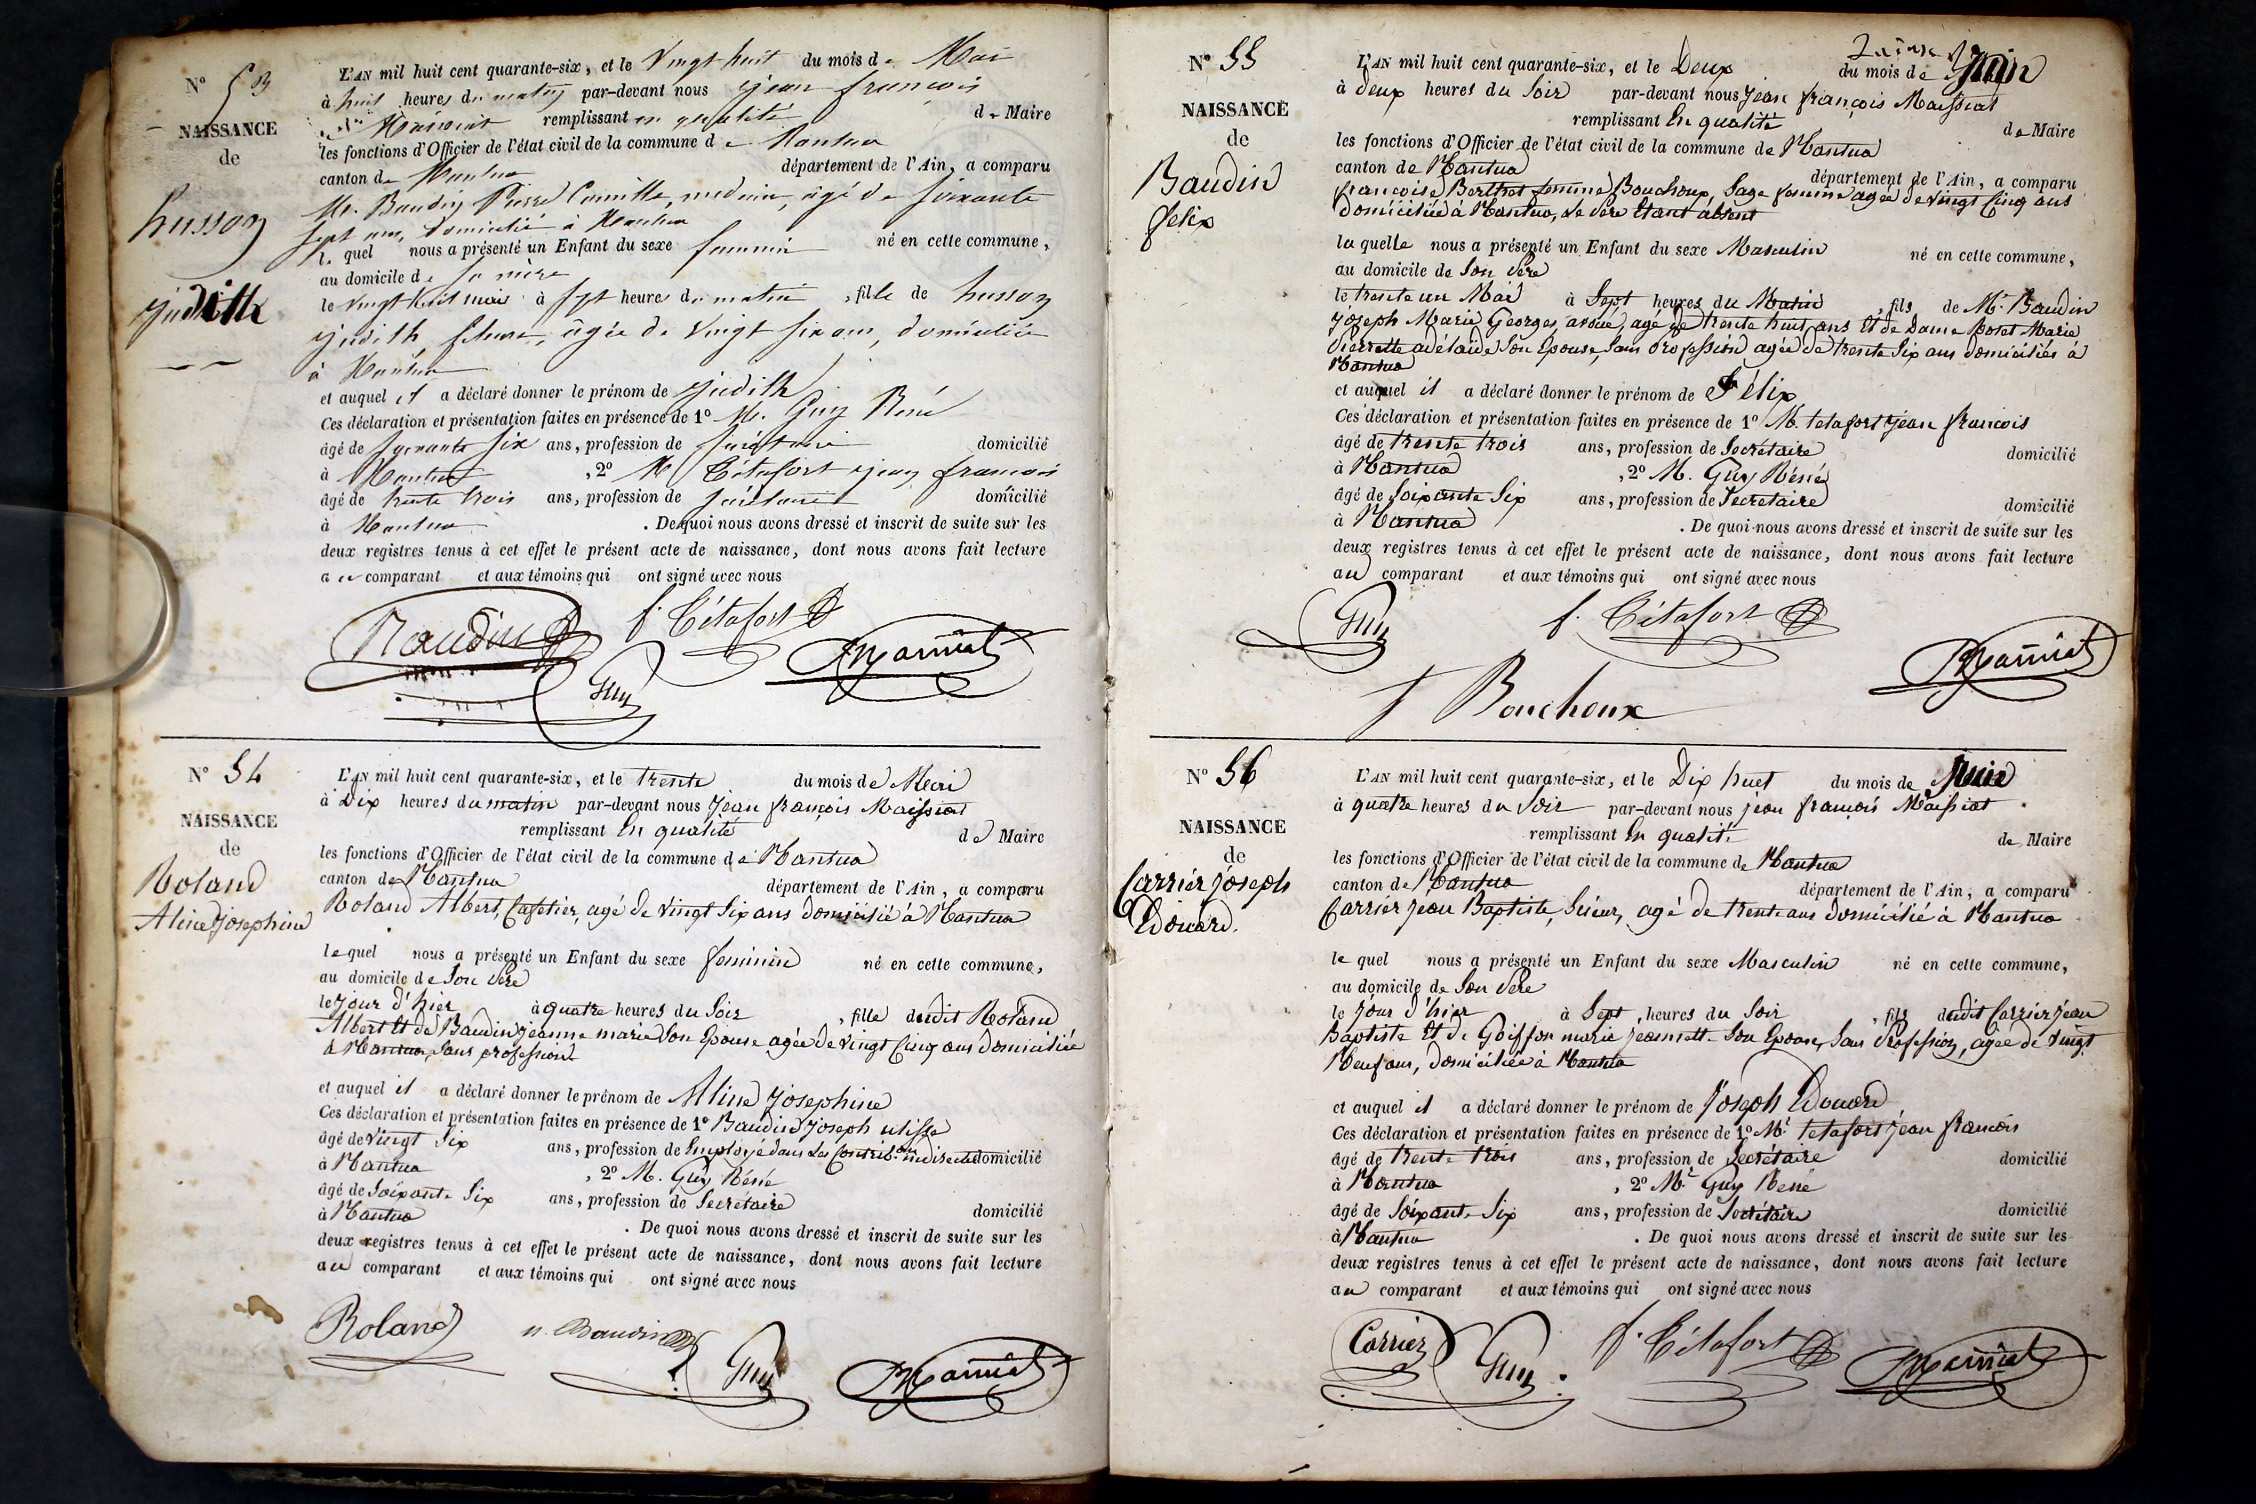 N° 53
NAISSANCE
de
husson
judith
L'AN mil huit cent quarante-six, et le Vingt huit du mois de Mai
à huit heures du matin par-devant nous jean françois
Maissiat remplissant en qualité de Maire
les fonctions d'Officier de l'état civil de la commune de Nantua
canton de Nantua département de l'Ain, a comparu
Mr. Baudin Pierre Camille, medecin, âgé de soixante
sept ans, domicilié à Nantua
le quel nous a présenté un Enfant du sexe feminin né en cette commune,
au domicile de sa mère
le vingt huit mai à sept heures du matin, fille de husson
judith, âgée de vingt six ans, domiciliée
à Nantua
et auquel il a déclaré donner le prénom de judith
Ces déclaration et présentation faites en présence de 1° M. Guy René
âgé de soixante six ans, profession de secrétaire domicilié
à Nantua, 2° M. Tétafort jean françois
âgé de trente trois ans, profession de secrétaire domicilié
à Nantua. De quoi nous avons dressé et inscrit de suite sur les
deux registres tenus à cet effet le présent acte de naissance, dont nous avons fait lecture
au comparant et aux témoins qui ont signé avec nous
Baudin f. Tétafort
Guy Maissiat
N° 54
NAISSANCE
de
Roland
Aline Josephine
L'AN mil huit cent quarante-six, et le trente du mois de Mai
à Dix heures du matin par-devant nous Jean françois Maissiat
remplissant En qualité de Maire
les fonctions d'Officier de l'état civil de la commune de Nantua
canton de Nantua département de l'Ain, a comparu
Roland Albert, Cafetier, agé de vingt Six ans domicilié à Nantua
le quel nous a présenté un Enfant du sexe feminin né en cette commune,
au domicile de Son Père
le jour d'hier à quatre heures du Soir, fille dudit Roland
Albert Et de Baudin jeanne marie Son Epouse agée de vingt Cinq ans domiciliée
à Nantua, Sans profession
et auquel il a déclaré donner le prénom de Aline Josephine
Ces déclaration et présentation faites en présence de 1° Baudin Joseph ulisse
âgé de vingt Six ans, profession de Employé dans Les Contrib.ons indirectes domicilié
à Nantua, 2° M. Guy Réné
âgé de Soixante Six ans, profession de Secretaire domicilié
à Nantua. De quoi nous avons dressé et inscrit de suite sur les
deux registres tenus à cet effet le présent acte de naissance, dont nous avons fait lecture
au comparant et aux témoins qui ont signé avec nous
Roland u. Baudin Guy Maissiat
N° 55
NAISSANCE
de
Baudin
felix
L'AN mil huit cent quarante-six, et le Deux du mois de Juin
à deux heures du Soir par-devant nous Jean françois Maissiat
remplissant En qualité de Maire
les fonctions d'Officier de l'état civil de la commune de Nantua
canton de Nantua département de l'Ain, a comparu
françoise Berthet femme Bouchoux, Sage femme agée de vingt Cinq ans
domiciliée à Nantua, Le Père Etant absent
la quelle nous a présenté un Enfant du sexe Masculin né en cette commune,
au domicile de Son Père
le trente un Mai à Sept heures du Matin, fils de Mr. Baudin
Joseph Marie Georges, avoué, agé de trente huit ans Et de Dame Botet Marie
Pierrette adélaïde Son Epouse, Sans profession agée de trente Six ans domiciliés à
Nantua
et auquel il a déclaré donner le prénom de Félix
Ces déclaration et présentation faites en présence de 1° M. tetafort Jean françois
âgé de trente trois ans, profession de Secrétaire domicilié
à Nantua, 2° M. Guy Réné
âgé de Soixante Six ans, profession de Secretaire domicilié
à Nantua. De quoi nous avons dressé et inscrit de suite sur les
deux registres tenus à cet effet le présent acte de naissance, dont nous avons fait lecture
au comparant et aux témoins qui ont signé avec nous
Guy f. Tétafort Maissiat
f Bouchoux
N° 56
NAISSANCE
de
Carrier Joseph
Edouard.
L'AN mil huit cent quarante-six, et le Dix huit du mois de Juin
à quatre heures du Soir par-devant nous jean françois Maissiat
remplissant En qualité de Maire
les fonctions d'Officier de l'état civil de la commune de Nantua
canton de Nantua département de l'Ain, a comparu
Carrier Jean Baptiste, Scieur, agé de trente ans domicilié à Nantua
le quel nous a présenté un Enfant du sexe Masculin né en cette commune,
au domicile de Son Père
le Jour d'hier à Sept heures du Soir, fils dudit Carrier Jean
Baptiste Et de Goiffon marie jeannette Son Epouse, Sans Profession, agée de vingt
Neuf ans, domiciliée à Nantua
et auquel il a déclaré donner le prénom de Joseph Edouard
Ces déclaration et présentation faites en présence de 1° Mr. tetafort Jean françois
âgé de trente trois ans, profession de Secrétaire domicilié
à Nantua, 2° Mr. Guy Réné
âgé de Soixante Six ans, profession de Secrétaire domicilié
à Nantua. De quoi nous avons dressé et inscrit de suite sur les
deux registres tenus à cet effet le présent acte de naissance, dont nous avons fait lecture
au comparant et aux témoins qui ont signé avec nous
Carrier Guy f. Tétafort Maissiat